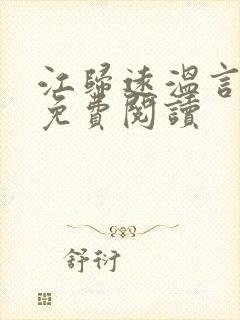 江歸遠溫言
免費閱讀
舒衍